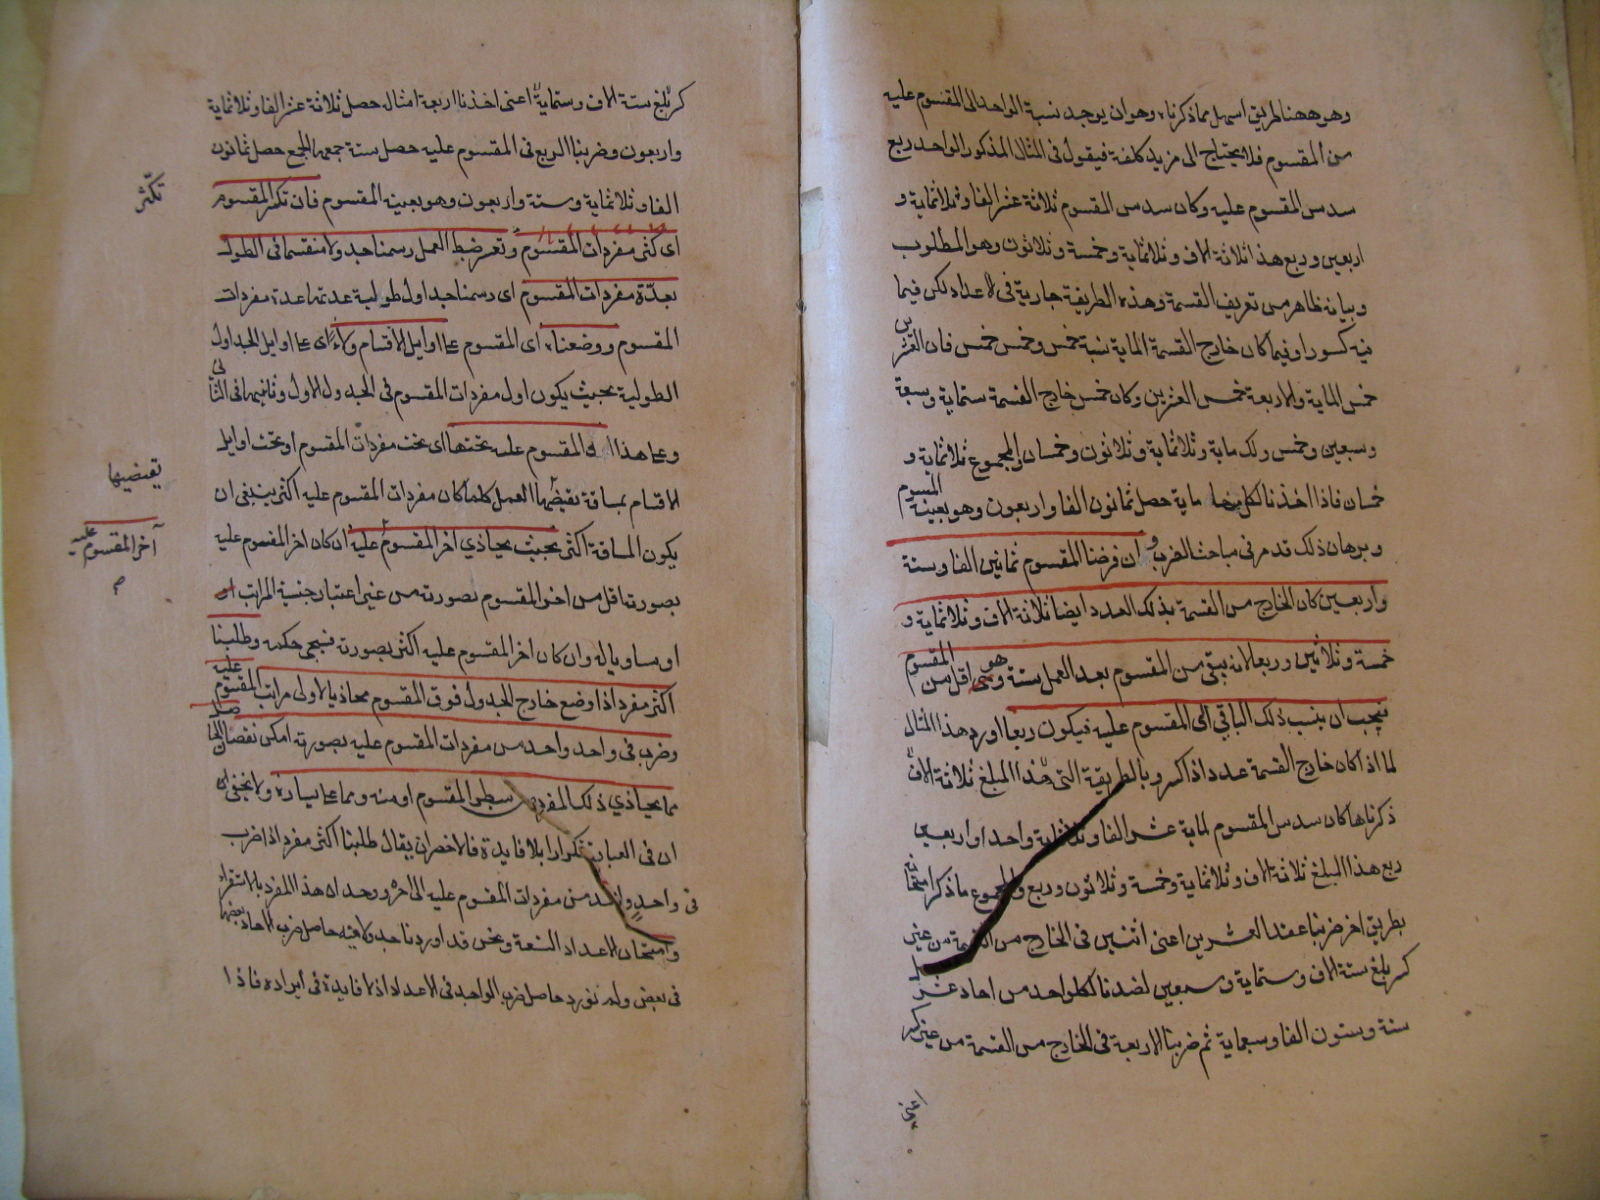 وهو ههنا طريق اسهل مما ذكرناه وهو ان يوجد نسبة الواحد الى المقسوم عليه
من المقسوم فلا يحتاج الى مزيد كلفة فيقول فى المثال المذكور الواحد ربع
سدس المقسوم عليه وكان سدس المقسوم ثلاثة عشر الفا وثلاثماية و
اربعين وربع هذا ثلاثة الاف وثلاثماية وخمسة وثلاثون وهو المطلوب
وبيانه ظاهر من تعريف القسمة وهذه الطريقة جارية فى الاعداد لكن فيما
فيه كسور او فيما كان خارج القسمة الماية نسبة خمس وخمس خمس فان العشرين
خمس الماية والاربعة خمس العشرين وكان خمس خارج القسمة ستماية وسبعة
وسبعين وخمس ولك ماية وثلاثماية وثلاثون وخمسان والمجموع ثلاثماية و
خمسان فاذا اخذنا لكل ماية حصل ثمانون الفا واربعون وهو بعينه المقسوم
وبرهان ذلك قد مر فى مباحث الضرب وان فرضنا المقسوم ثمانين الفا وستة
واربعين كان الخارج من القسمة بذلك العدد ايضا ثلاثة الاف وثلاثماية و
خمسة وثلاثين وربعا لانه يبقى من المقسوم بعد العمل ستة وهو اقل من المقسوم
فيجب ان ينسب ذلك الباقى الى المقسوم عليه فيكون ربعا اورد هذا المثال
لما اذا كان خارج القسمة عددا ذا كسر وبالطريقة التى هذا المبلغ ثلاثة الاف
ذكرناها كان سدس المقسوم لماية عشر الفا وثلاثماية واحدا واربعين
ربع هذا المبلغ ثلاثة الاف وثلاثماية وخمسة وثلاثون وربع والمجموع ما ذكر امتحانه
بطريق اخر ضربنا عقد العشرين اعنى اثنين فى الخارج من القسمة من غير
كسر بلغ ستة الاف وستماية وسبعين اخذنا لكل واحد من احاد عشرا
ستة وستون الفا وسبعماية ثم ضربنا الاربعة فى الخارج من القسمة من غير كسر
كر بلغ ستة الاف وستماية اعنى اخذنا اربعة امثال حصل ثلاثة عشر الفا وثلاثماية
واربعون وضربنا الربع فى المقسوم عليه حصل ستة جمعها الجمع حصل ثمانون
الفا وثلاثماية وستة واربعون وهو بعينه المقسوم فان تكثر المقسوم
اى كثر مفردات المقسوم وتعسر ضبط العمل رسمنا جدولا منقسما فى الطول
بعدة مفردات المقسوم اى رسمنا جداول طولية عدتها عدة مفردات
المقسوم ووضعناه اى المقسوم على اوايل الاقسام ولاء اى على اوايل الجداول
الطولية بحيث يكون اول مفردات المقسوم فى الجدول الاول وثانيها فى الثانى
وعلى هذا المقسوم عليه تحتها اى تحت مفردات المقسوم او تحت اوايل
الاقسام بمسافة يقتضيها العمل كلما كان مفردات المقسوم عليه اكثر ينبغى ان
يكون المسافة اكثر بحيث يحاذي اخر المقسوم عليه ان كان اخر المقسوم عليه
بصورته اقل من اخر المقسوم بصورته من غير اعتبار جنسية المراتب او
او مساويا له وان كان اخر المقسوم عليه اكثر بصورته فسيجى حكمه وطلبنا
اكثر مفرد اذا وضع خارج الجدول فوق المقسوم محاذيا لاولى مراتب المقسوم عليه
وضرب فى واحد واحد من مفردات المقسوم عليه بصورته امكن نقصان الحاصل
مما يحاذي ذلك المفرد من سطر المقسوم او منه ومما على يساره ولا يخفى ان
ان فى العبارة تكرارا بلا فايدة فالاخصر ان يقال طلبنا اكثر مفرد اذا ضرب
فى واحد واحد من مفردات المقسوم عليه الى اخره ووجدان هذا المفرد بالاستقراء
وامتحان الاعداد التسعة ونحن قد اوردنا جدولا فيه حاصل ضرب الاحاد بعضها
فى بعض ولم نورد حاصل ضرب الواحد فى الاعداد اذ لا فايدة فى ايراده فاذا
تكثر
يقتضيها
آخر المقسوم عليه